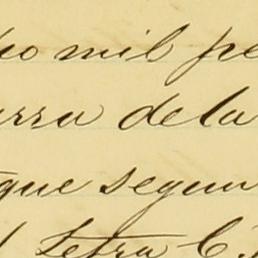 ho mil pe
urra de la
que segun
Letra C.